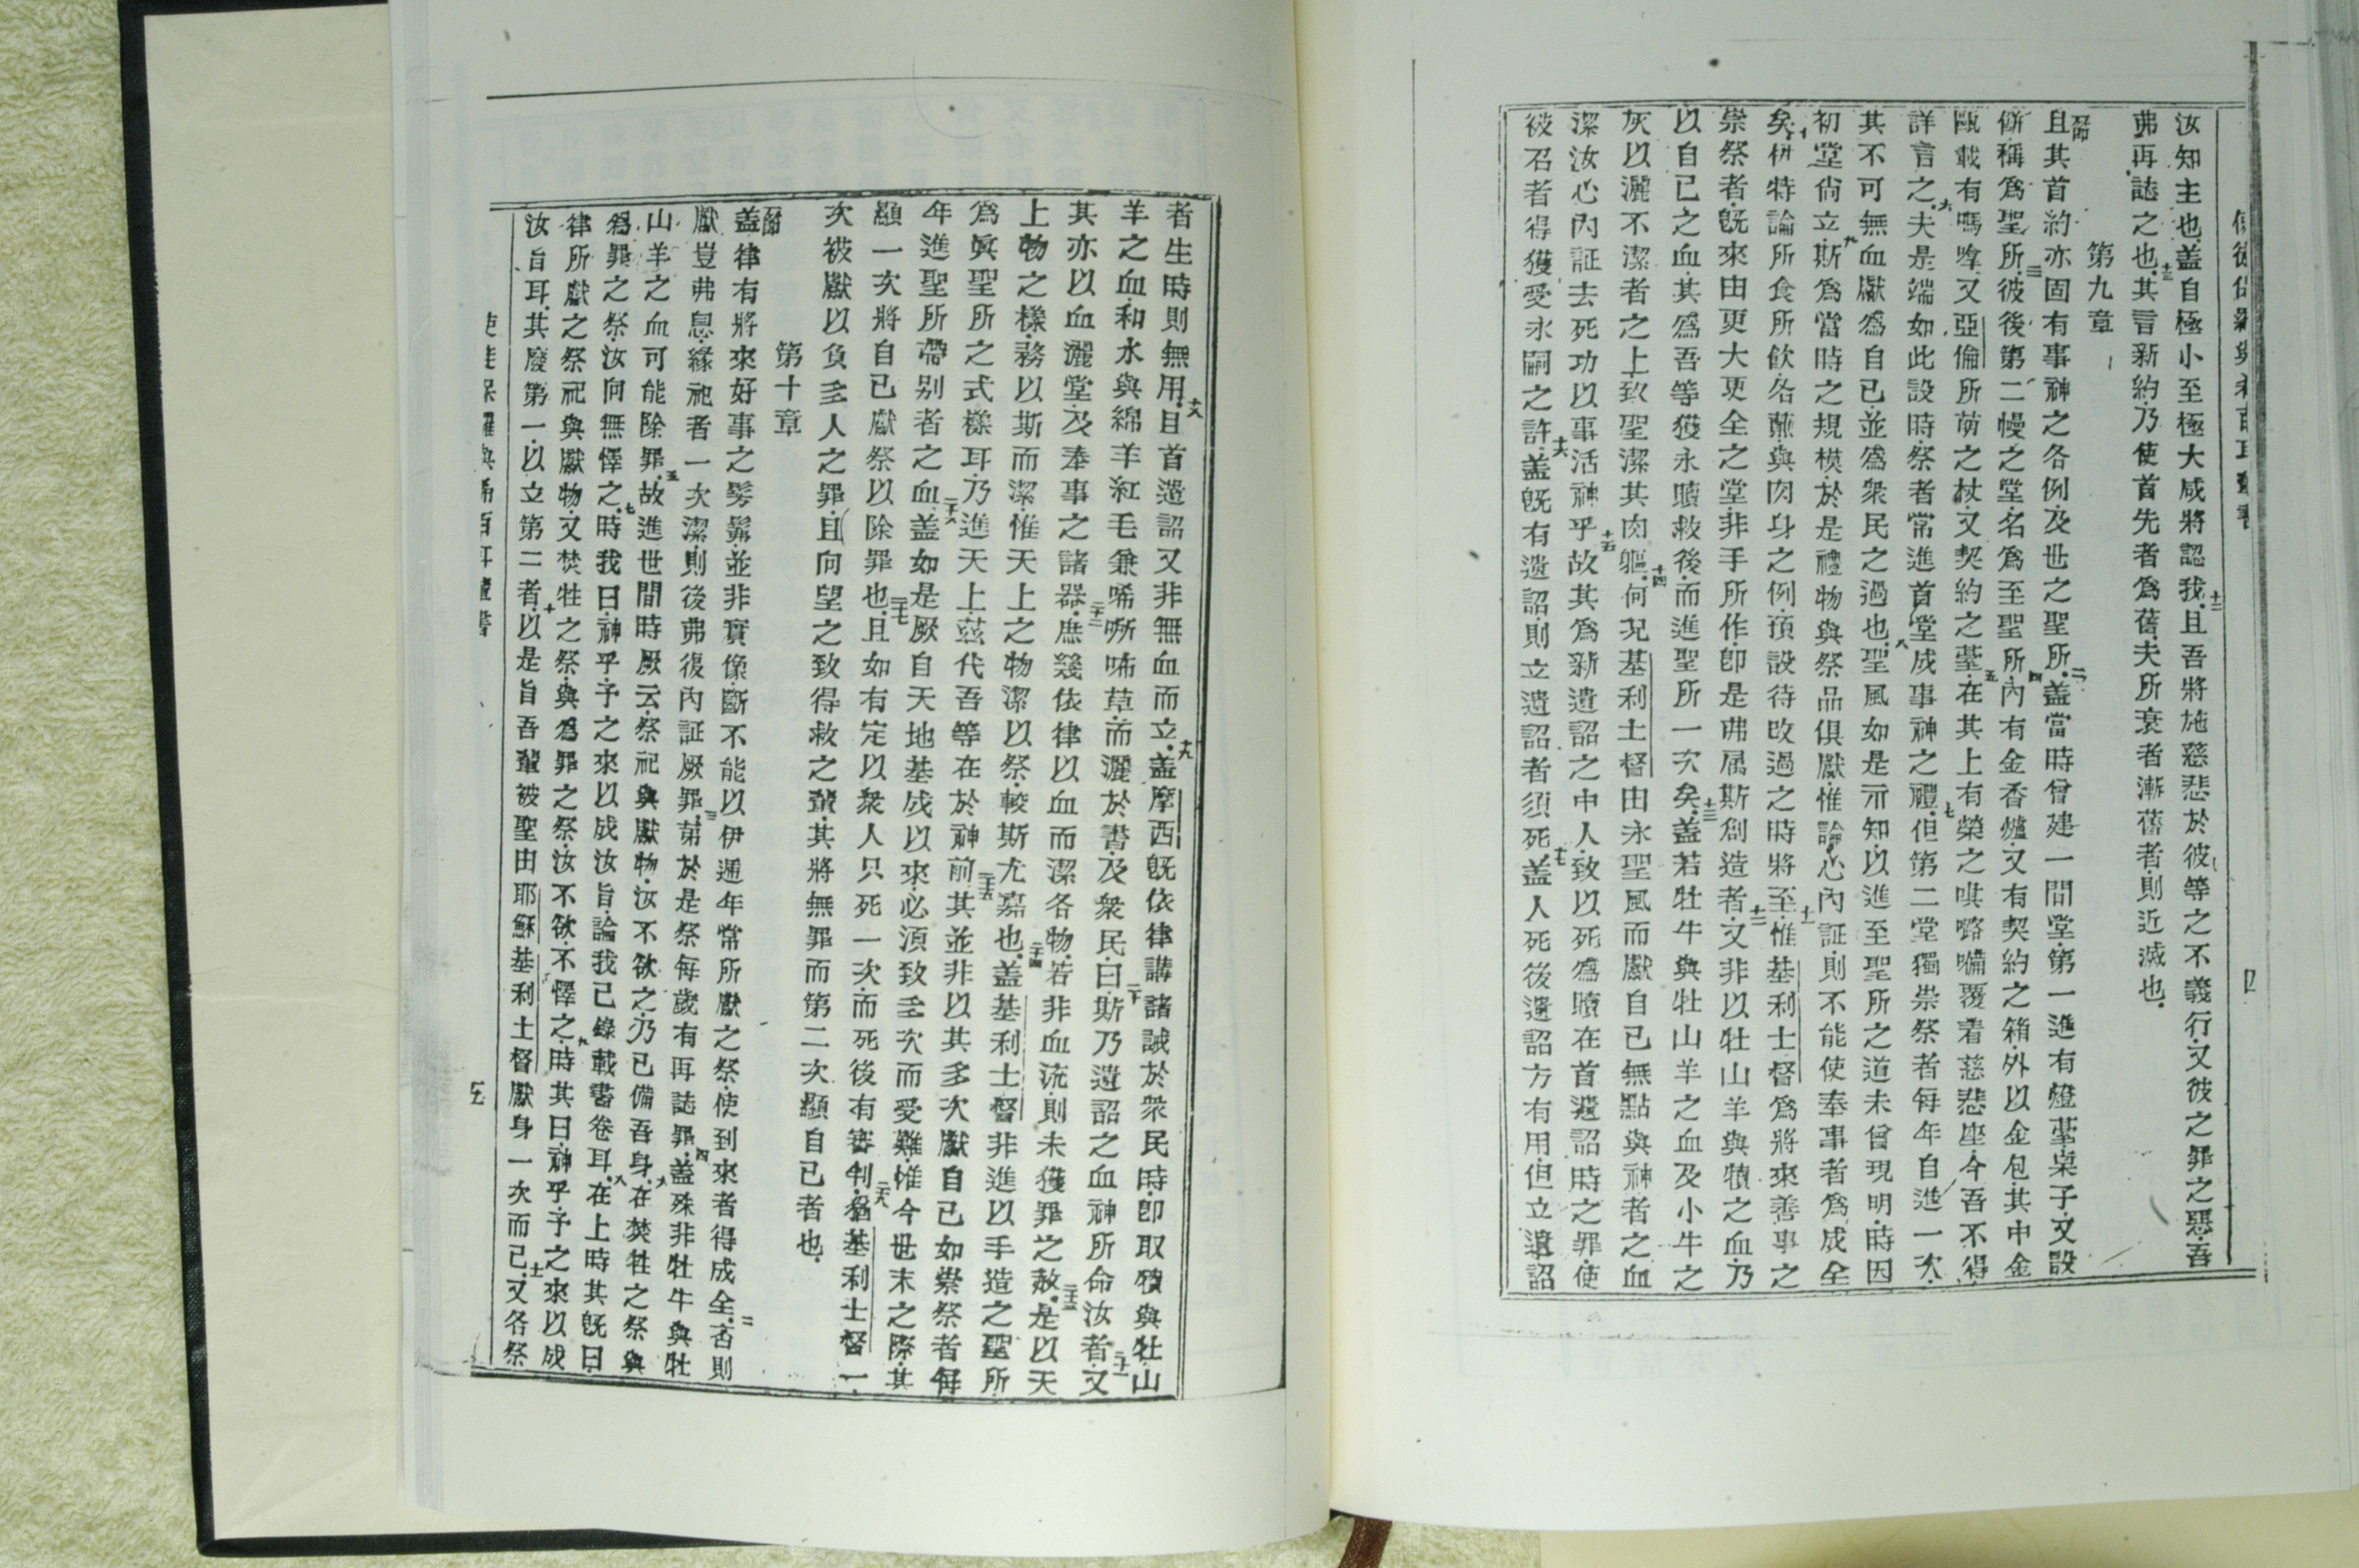 使徒保羅與希百耳輩書
四
汝知主也盖自極小至極大咸將認我十二且吾將施慈悲於彼等之不義行又彼之罪之惡吾
弗再誌之也十三其言新約乃使首先者爲舊夫所衰者漸舊者則近滅也
第九章
一節且其首約亦固有事神之各例及世之聖所二盖當時曾建一間堂第一進有燈䑓桌子又設
餅稱爲聖所三彼後第二幔之堂名爲至聖所四內有金香爐又有契約之箱外以金包其中金
瓶載有嗎㖮又亞倫所萌之杖又契約之䑓五在其上有榮之𠶸嚕囄覆着慈悲座今吾不得
詳言之六夫是端如此設時祭者常進首堂成事神之禮七但第二堂獨崇祭者每年自進一次
其不可無血獻爲自己並爲衆民之過也八聖風如是示知以進至聖所之道未曾現明時因
初堂尙立九斯爲當時之規模於是禮物與祭品俱獻惟論心內証則不能使奉事者爲成全
矣十伊特論所食所飲各蘸與肉身之例預設待改過之時將至十一惟基利士督爲將來善事之
崇祭者旣來由更大更全之堂非手所作卽是弗屬斯創造者十二又非以牡山羊與犢之血乃
以自己之血其爲吾等獲永贖救後而進聖所一次矣十三盖若牡牛與牡山羊之血及小牛之
灰以灑不潔者之上致聖潔其肉軀十四何况基利士督由永聖風而獻自己無點與神者之血
潔汝心內証去死功以事活神乎十五故其爲新遺詔之中人致以死爲贖在首遺詔時之罪使
被召者得獲受永嗣之許十六盖旣有遺詔則立遺詔者須死十七盖人死後遺詔方有用但立遺詔
者生時則無用十八且首遺詔又非無血而立十九盖摩西旣依律講諸誡於衆民時卽取犢與牡山
羊之血和水與綿羊紅毛兼唏㖿咘草而灑於書及衆民二十曰斯乃遺詔之血神所命汝者二十一又
其亦以血灑堂及奉事之諸器二十二庶幾依律以血而潔各物若非血流則未獲罪之赦二十三是以天
上物之樣務以斯而潔惟天上之物潔以祭較斯尤嘉也二十四盖基利士督非進以手造之聖所
爲眞聖所之式樣耳乃進天上玆代吾等在於神前二十五其並非以其多次獻自己如崇祭者每
年進聖所帶別者之血二十六盖如是厥自天地基成以來必須致多次而受難惟今世末之際其
顯一次將自己獻祭以除罪也二十七且如有定以衆人只死一次而死後有審判二十八猶基利士督一
次被獻以負多人之罪且向望之致得救之輩其將無罪而第二次顯自己者也
第十章
一節盖律有將來好事之髣髴並非實像斷不能以伊逓年常所獻之祭使到來者得成全二否則
獻豈弗息緣祀者一次潔則後弗復內証厥罪三苐於是祭每歲有再誌罪四盖殊非牡牛與牡
山羊之血可能除罪五故進世間時厥云祭祀與獻物汝不欲之乃已備吾身六在焚牲之祭與
爲罪之祭汝向無懌之七時我曰神乎予之來以成汝旨論我已錄載書卷耳八在上時其旣曰
律所獻之祭祀與獻物又焚牲之祭與爲罪之祭汝不欲不懌之九時其曰神乎予之來以成
汝旨耳其廢第一以立第二者十以是旨吾輩被聖由耶穌基利士督獻身一次而已十一又各祭
使徒保羅與希百耳輩書
五